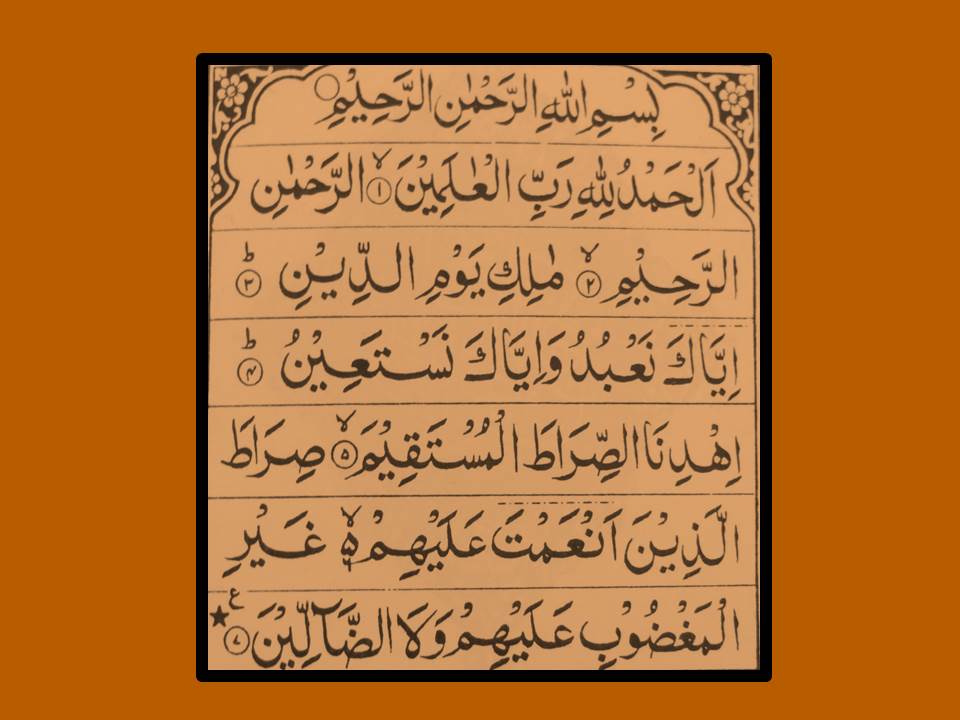 بِسْمِ اللهِ الرَّحْمٰنِ الرَّحِيْمِ
اَلْحَمْدُ لِلّٰهِ رَبِّ الْعٰلَمِيْنَ ۙ﴿۱﴾ الرَّحْمٰنِ
الرَّحِيْمِ ۙ﴿۲﴾ مٰلِكِ يَوْمِ الدِّيْنِ ؕ﴿۳﴾
اِيَّاكَ نَعْبُدُ وَاِيَّاكَ نَسْتَعِيْنُ ؕ﴿۴﴾
اِهْدِنَا الصِّرَاطَ الْمُسْتَقِيْمَ ۙ﴿۵﴾ صِرَاطَ
الَّذِيْنَ اَنْعَمْتَ عَلَيْهِمْ ۙ۵ غَيْرِ
الْمَغْضُوْبِ عَلَيْهِمْ وَلَا الضَّآلِّيْنَ ﴿۷﴾ ع ★